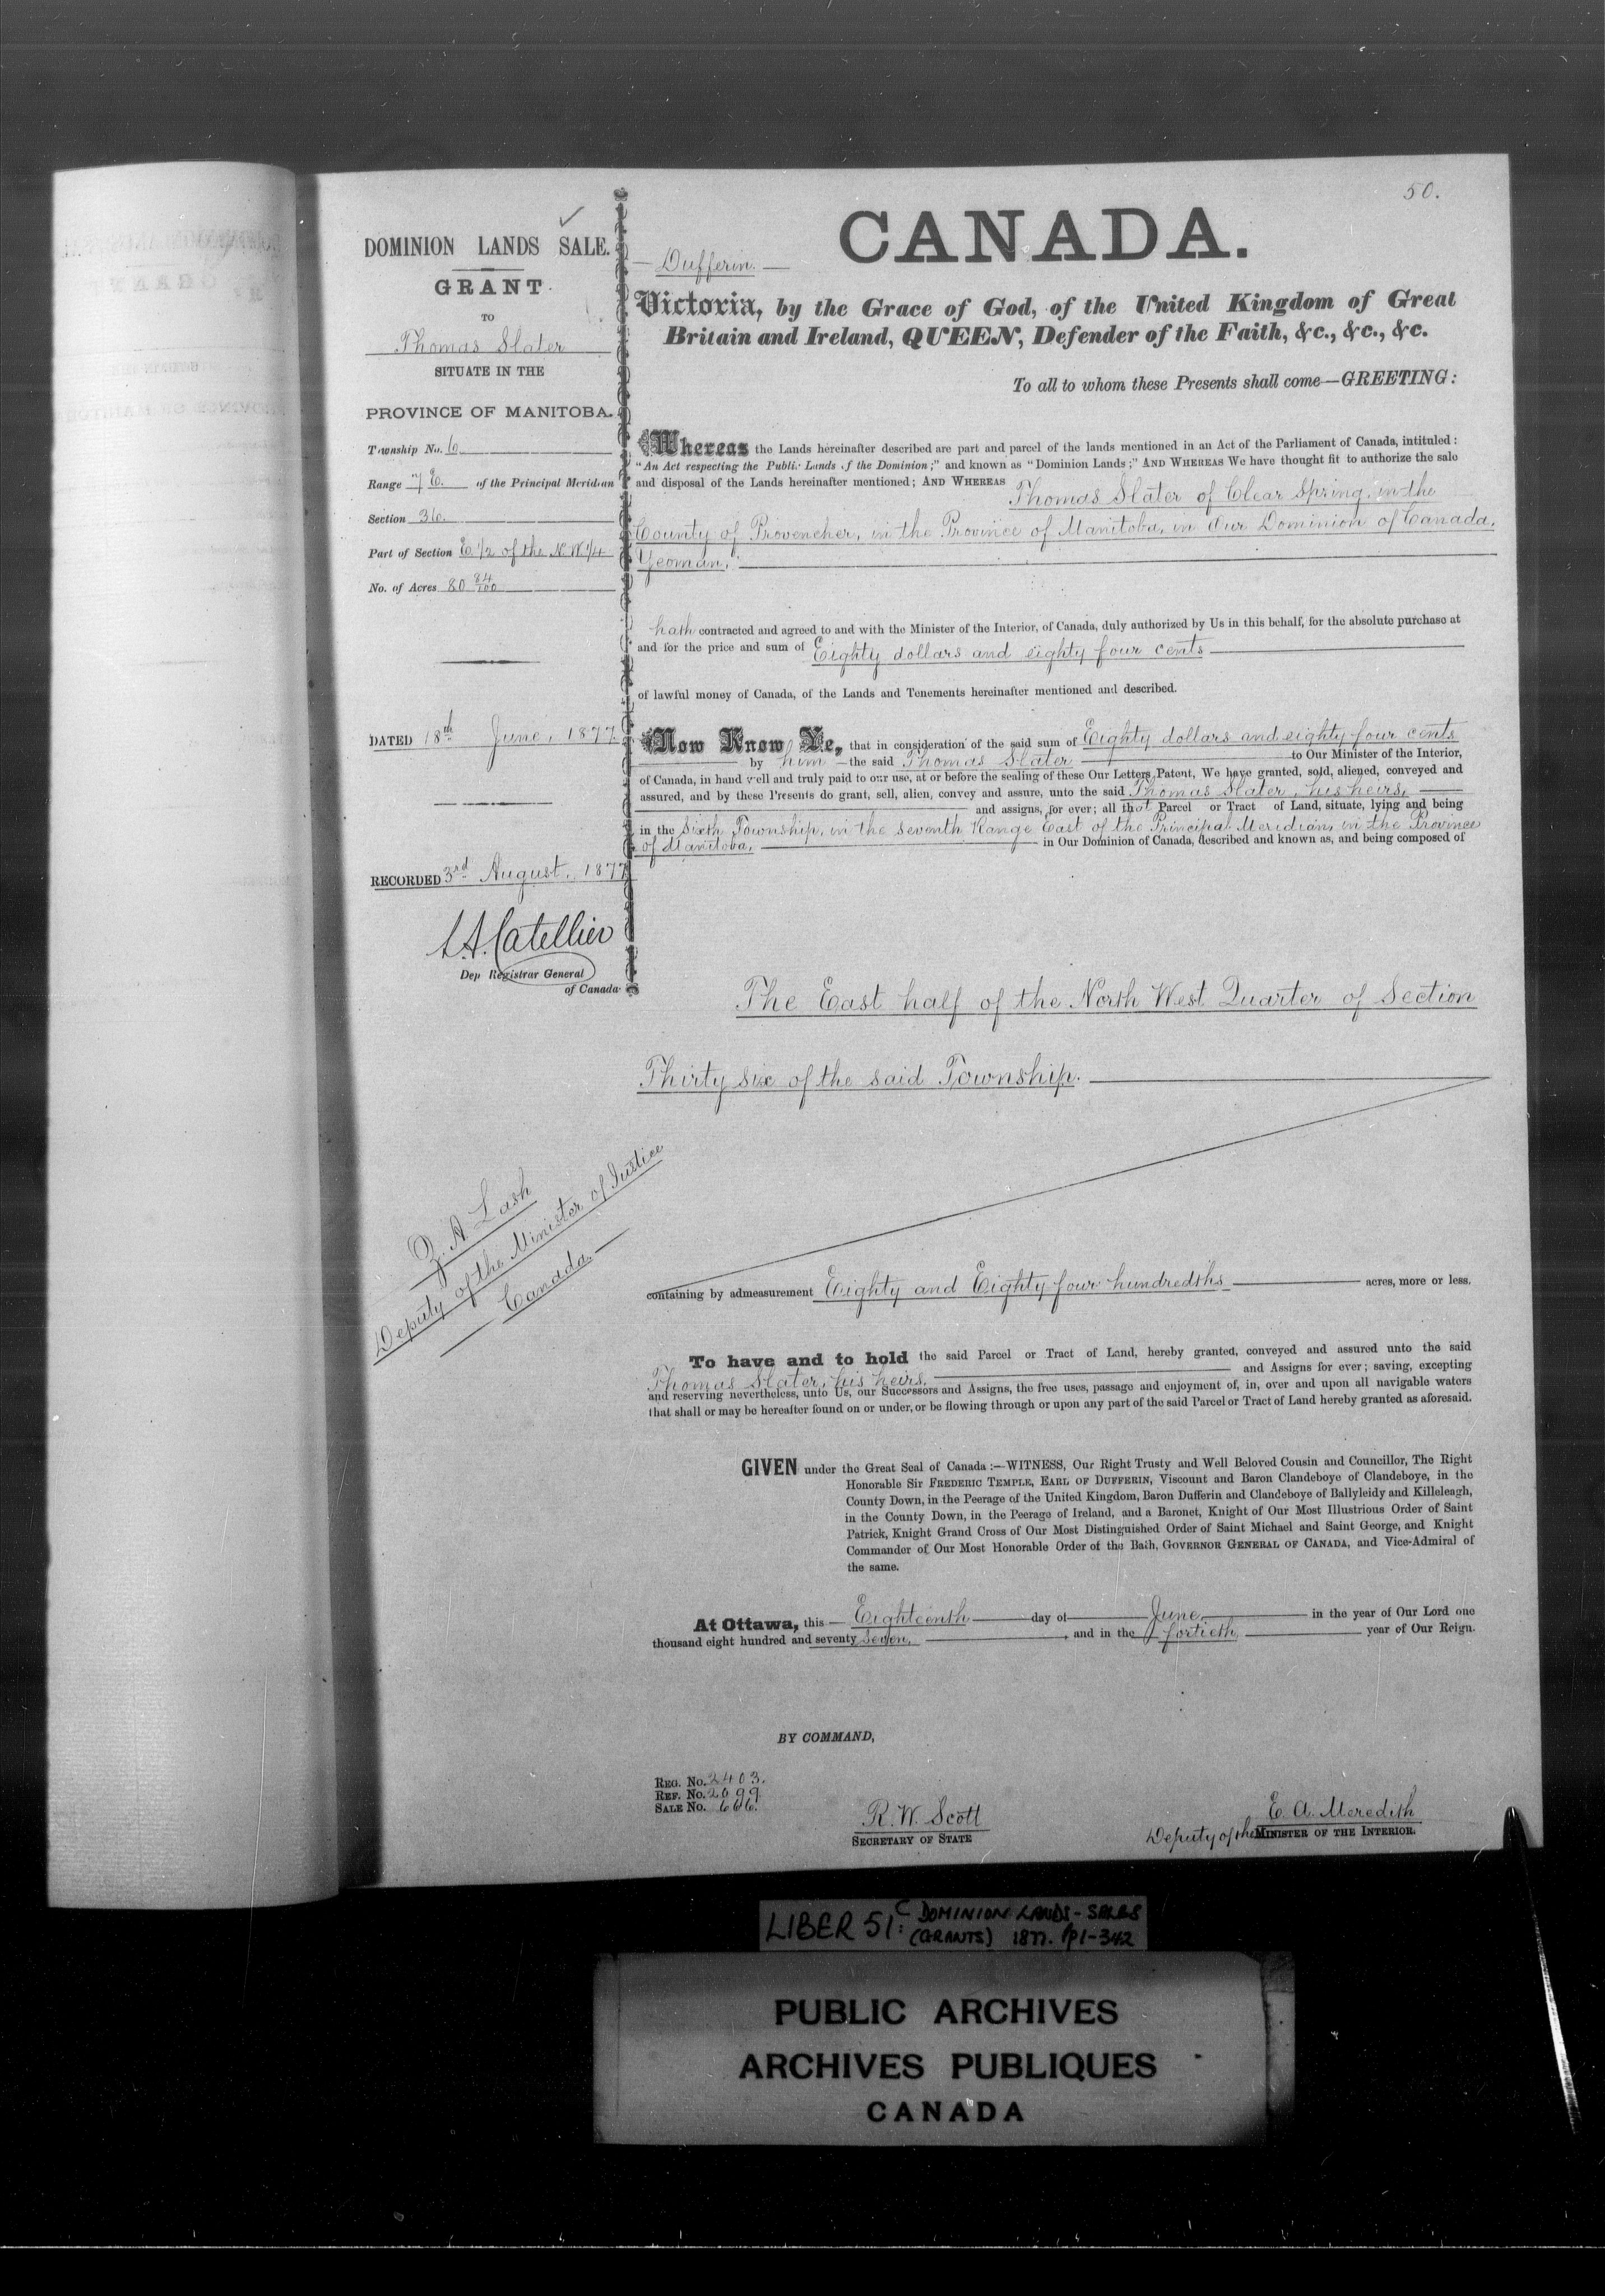 50.
DOMINION LANDS SALE.
GRANT
TO
Thomas Slater
SITUATE IN THE
PROVINCE OF MANITOBA.
Township No. 6
Range 7 E. of the Principal Meridian
Section 36.
Part of Section E. 1/2 of the N.W. 1/4
No. of Acres 80 84/100
DATED 18th June, 1877
RECORDED 3rd August, 1877
L.A. Catellier
Dep Registrar General
of Canada
Z. A. Lash
Deputy of the Minister of Justice
Canada
CANADA.
Dufferin.
Victoria, by the Grace of God, of the United Kingdom of Great
Britain and Ireland, QUEEN, Defender of the Faith, &c., &c., &c.
To all to whom these Presents shall come—GREETING:
Whereas the Lands hereinafter described are part and parcel of the lands mentioned in an Act of the Parliament of Canada, intituled:
"An Act respecting the Public Lands of the Dominion;" and known as "Dominion Lands;" AND WHEREAS We have thought fit to authorize the sale
and disposal of the Lands hereinafter mentioned; AND WHEREAS Thomas Slater of Clear Spring, in the
County of Provencher, in the Province of Manitoba, in Our Dominion of Canada,
Yeoman,
hath contracted and agreed to and with the Minister of the Interior, of Canada, duly authorized by Us in this behalf, for the absolute purchase at
and for the price and sum of Eighty dollars and eighty four cents
of lawful money of Canada, of the Lands and Tenements hereinafter mentioned and described.
Now Know Ye, that in consideration of the said sum of Eighty dollars and eighty four cents
by him the said Thomas Slater to Our Minister of the Interior,
of Canada, in hand well and truly paid to our use, at or before the sealing of these Our Letters Patent, We have granted, sold, aliened, conveyed and
assured, and by these Presents do grant, sell, alien, convey and assure, unto the said Thomas Slater, his heirs,
and assigns, for ever; all that Parcel or Tract of Land, situate, lying and being
in the Sixth Township, in the Seventh Range East of the Principal Meridian, in the Province
of Manitoba, in Our Dominion of Canada, described and known as, and being composed of
The East half of the North West Quarter of Section
Thirty six of the said Township.
containing by admeasurement Eighty and Eighty four hundredths acres, more or less.
To have and to hold the said Parcel or Tract of Land, hereby granted, conveyed and assured unto the said
Thomas Slater, his heirs, and Assigns for ever; saving, excepting
and reserving nevertheless, unto Us, our Successors and Assigns, the free uses, passage and enjoyment of, in, over and upon all navigable waters
that shall or may be hereafter found on or under, or be flowing through or upon any part of the said Parcel or Tract of Land hereby granted as aforesaid.
GIVEN under the Great Seal of Canada:—WITNESS, Our Right Trusty and Well Beloved Cousin and Councillor, The Right
Honorable Sir FREDERIC TEMPLE, EARL OF DUFFERIN, Viscount and Baron Clandeboye of Clandeboye, in the
County Down, in the Peerage of the United Kingdom, Baron Dufferin and Clandeboye of Ballyleidy and Killeleagh,
in the County Down, in the Peerage of Ireland, and a Baronet, Knight of Our Most Illustrious Order of Saint
Patrick, Knight Grand Cross of Our Most Distinguished Order of Saint Michael and Saint George, and Knight
Commander of Our Most Honorable Order of the Bath, GOVERNOR GENERAL OF CANADA, and Vice-Admiral of
the same.
At Ottawa, this Eighteenth day of June, in the year of Our Lord one
thousand eight hundred and seventy seven, and in the fortieth year of Our Reign.
BY COMMAND,
REG. No. 2403.
REF. No. 2699
SALE No. 666.
R. W. Scott
SECRETARY OF STATE
E. A. Meredith
Deputy of the MINISTER OF THE INTERIOR.
LIBER 51: C DOMINION LANDS - SALES
(GRANTS) 1877. pp1-342
PUBLIC ARCHIVES
ARCHIVES PUBLIQUES
CANADA